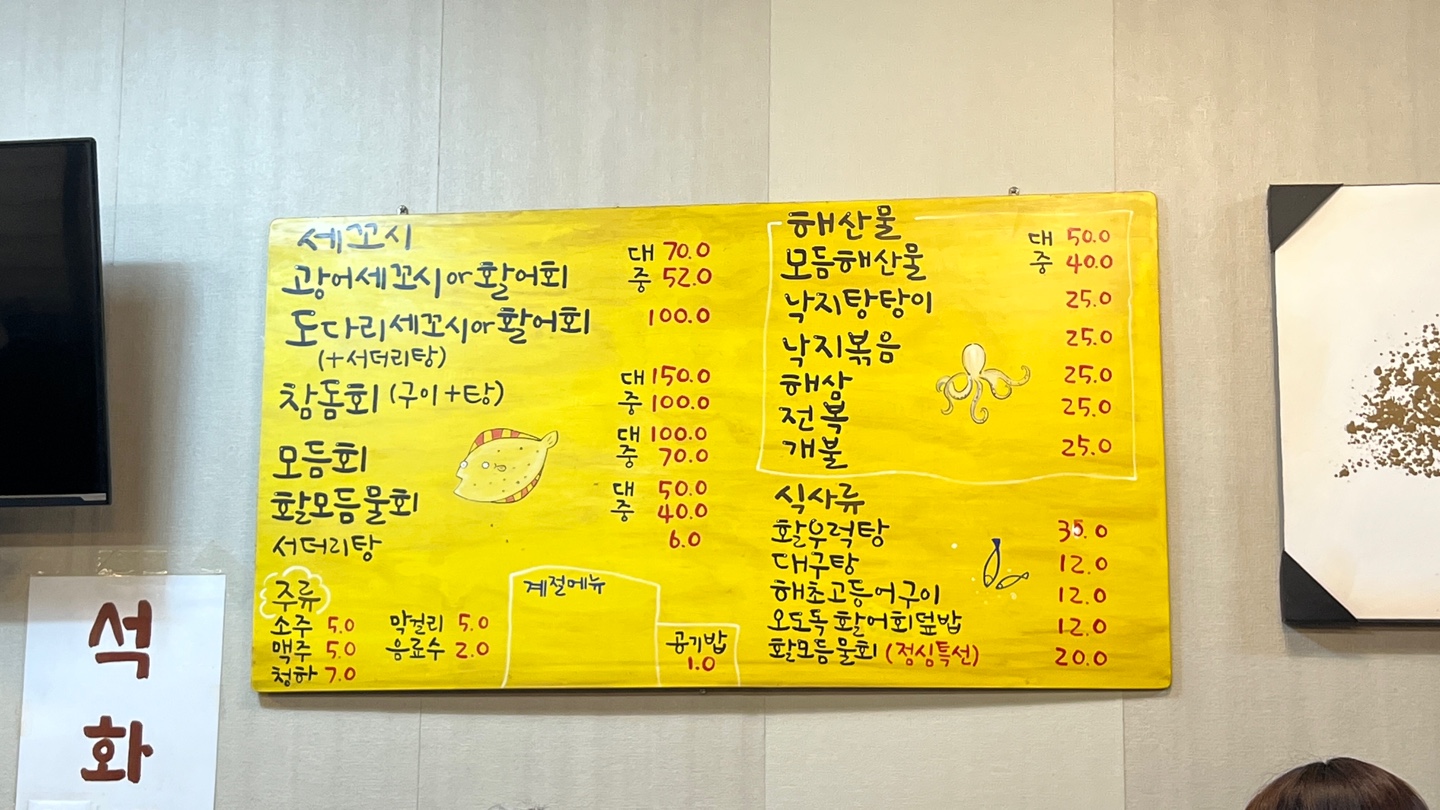 세꼬시
광어세꼬시or활어회 대 70.0
중 52.0
도다리세꼬시or활어회 100.0
(+서더리탕)
참돔회(구이+탕) 대 150.0
중 100.0
모듬회 대 100.0
중 70.0
활모듬물회 대 50.0
중 40.0
서더리탕 6.0
주류
소주 5.0 막걸리 5.0
맥주 5.0 음료수 2.0
청하 7.0
계절메뉴
공기밥
1.0
해산물
모듬해산물 대 50.0
중 40.0
낙지탕탕이 25.0
낙지볶음 25.0
해삼 25.0
전복 25.0
개불 25.0
식사류
활우럭탕 35.0
대구탕 12.0
해초고등어구이 12.0
오도독 활어회덮밥 12.0
활모듬물회 (점심특선) 20.0
석
화